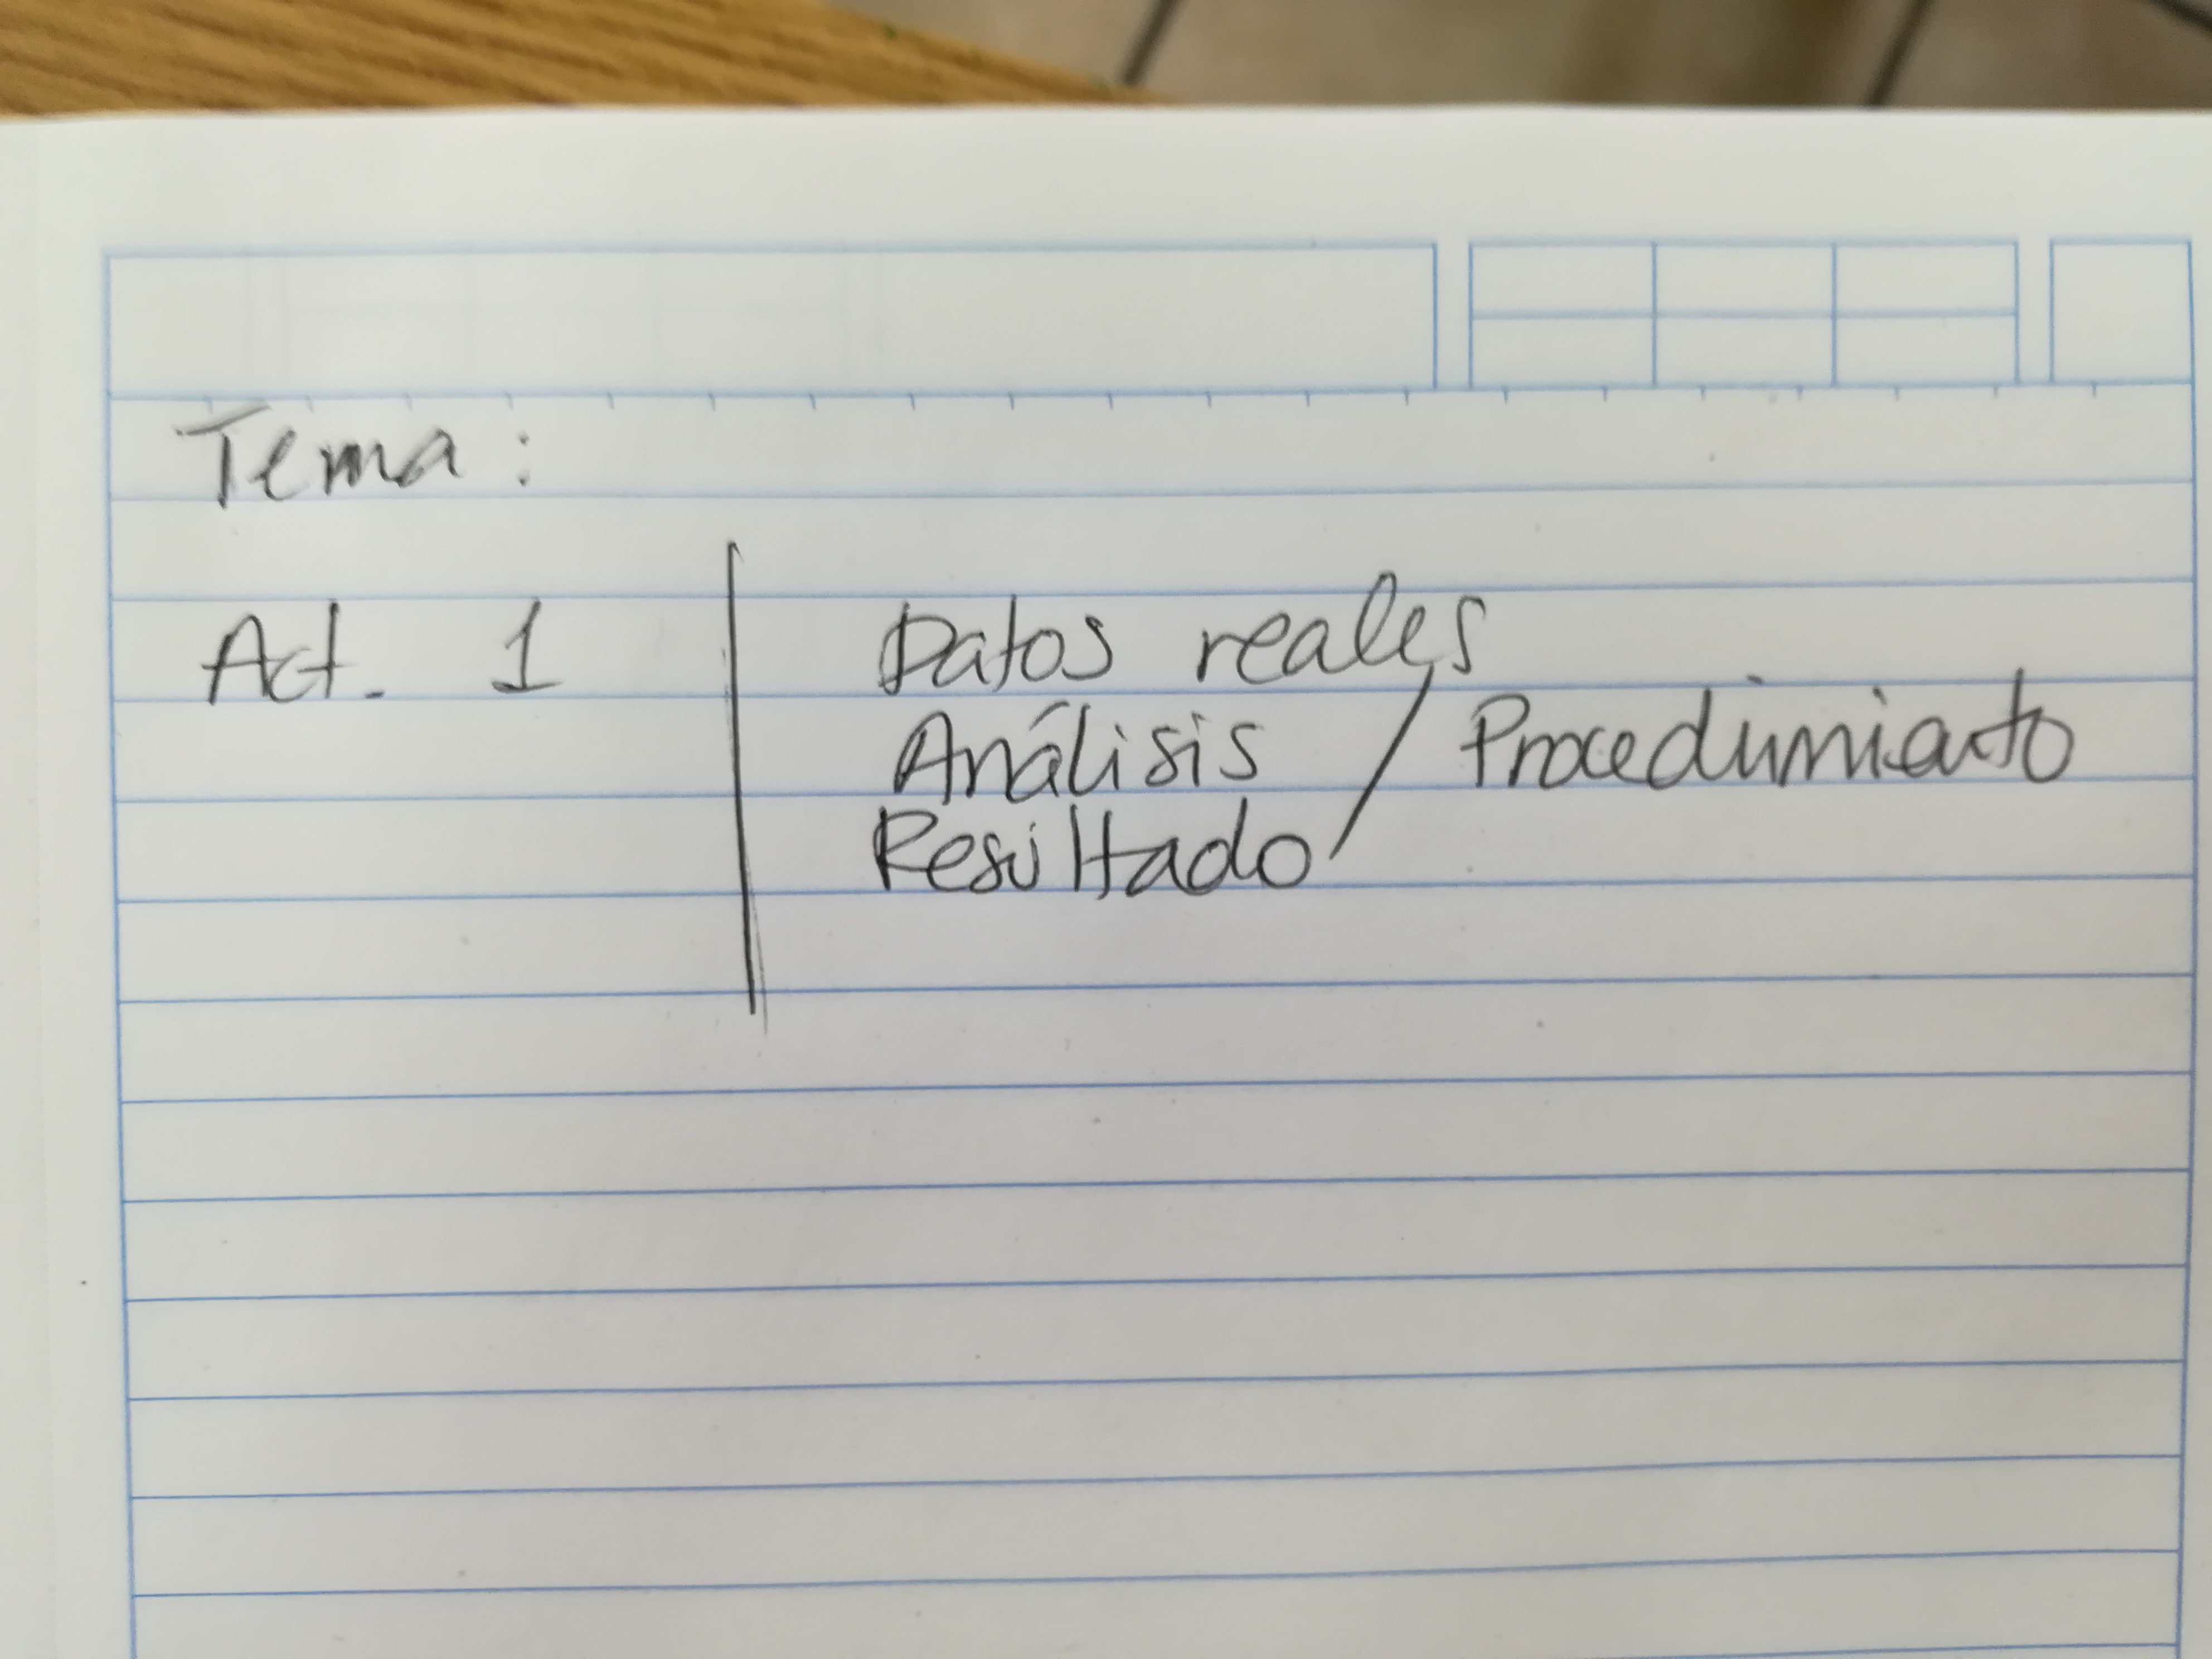 Tema :
Act. 1 Datos reales
Análisis / Procedimiento
Resultado